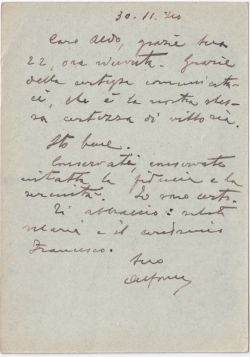 30.11.40
Caro Aldo, grazie tua
22, ora ricevuta. Grazie
della certezza comunicata-
ci, che è la nostra stes-
sa certezza di vittoria.
Sto bene.
Conservate, conservate
intatta la fiducia e la
serenità. Io sono certo.
Ti abbraccio: saluta
Maria e il carissimo
Francesco.
tuo